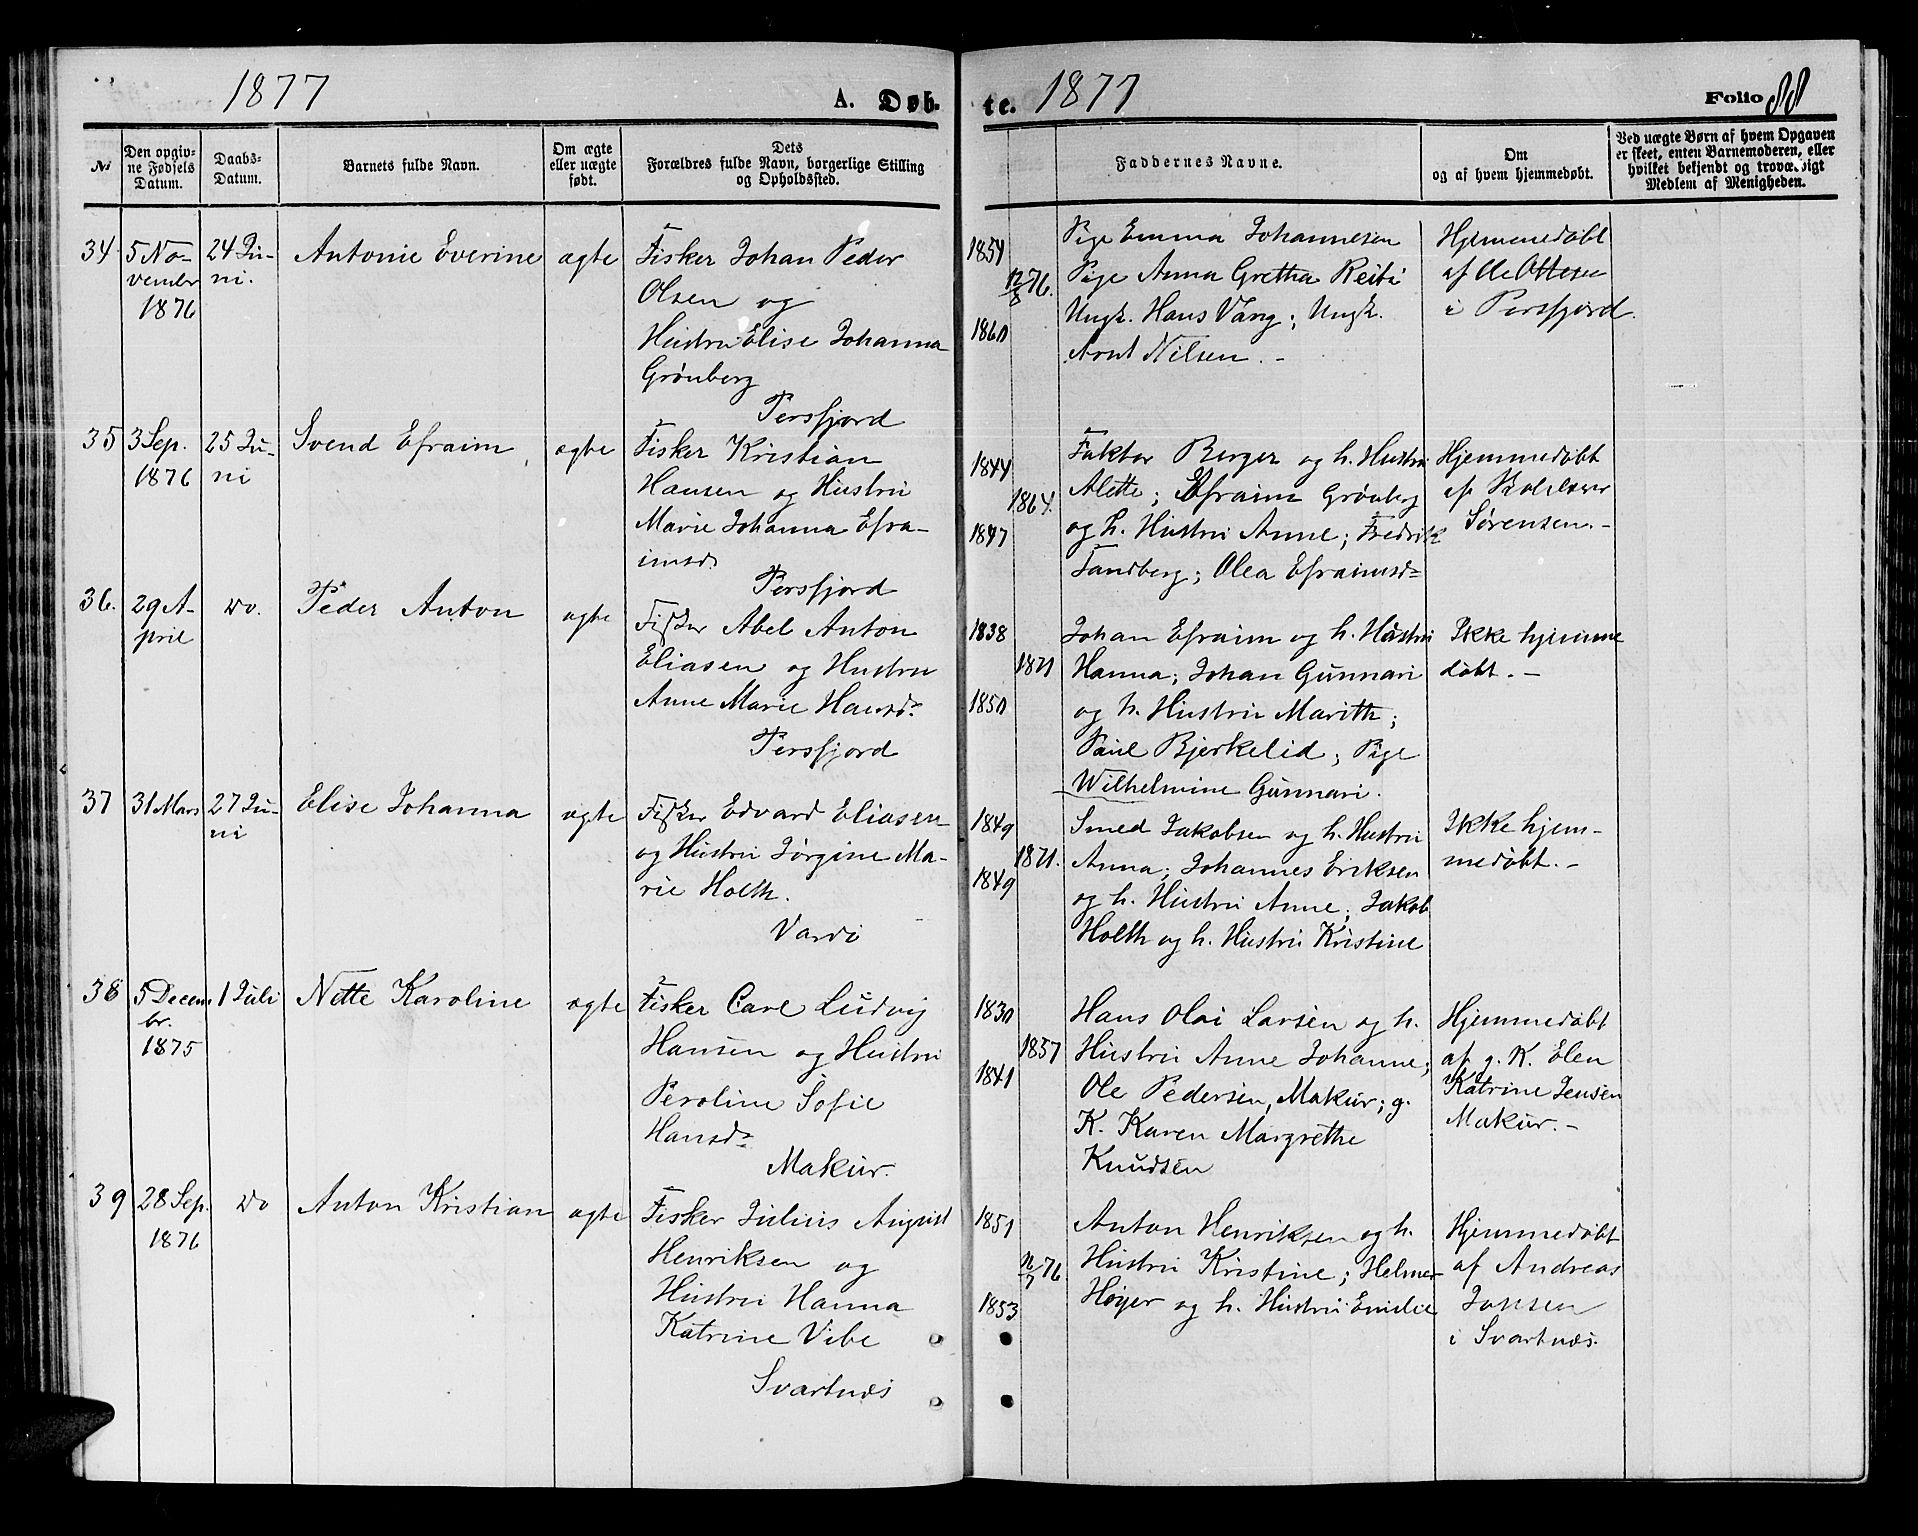 1877
A. Døb-
No
Den opgiv-
ne Fødsels
Datum.
Daabs-
Datum.
Barnets fulde Navn.
Om ægte
eller uægte
født.
Dets
Forældres fulde Navn, borgerlige Stilling
og Opholdssted.
34
5 No-
vember
1876
24 Ju-
ni.
Antonie Everine
ægte
Fisker Johan Peder
Olsen og
Hustru Elise Johanna
Grönberg
Persfjord
35
3 Sep.
1876
25 Ju-
ni
Svend Efraim
ægte
Fisker Kristian
Hansen og Hustru
Marie Johanna Efra-
imsd.
Persfjord
36.
29 A-
pril
do.
Peder Anton
ægte
Fisker Abel Anton
Eliasen og Hustru
Anne Marie Hansd.
Persfjord
37
31 Mars
27 Ju-
ni
Elise Johanna
ægte
Fisker Edvard Eliasen
og Hustru Jörgine Ma-
rie Holth.
Vardö
38
5 Decem
br.
1875
1 Juli
Nette Karoline
ægte
Fisker Carl Ludvig
Hansen og Hustru
Peroline Sofie
Hansd.
Makur.
39
28 Sep.
1876
do
Anton Kristian
ægte
Fisker Julius August
Henriksen og
Hustru Hanna
Katrine Vibe
Svartnæs
te. 1877
Folio 88
Faddernes Navne.
Om
og af hvem hjemmedøbt.
Ved uægte Børn af hvem Opgaven
er skeet, enten Barnemoderen, eller
hvilket bekjendt og troværdigt
Medlem af Menigheden.
1854
12/8 76.
1860
Pige Emma Johannesen
Pige Anna Gretha Reiti
Ungk. Hans Vang; Ungk.
Arnt Nilsen. -
Hjemmedöbt
af Ole Ottesen
i Persfjord.
1844
1864.
1847
Faktor Berger og h. Hustru
Alette; Efraim Grönberg
og h. Hustru Anne; Fredrik
Tandberg; Olea Efraimsd.
Hjemmedöbt
af
Sörensen. -
1838
1871
1850
Johan Efraim og h. Hustru
Hanna; Johan Gunnari
og h. Hustru Marith;
Paul Bjerkelid; Pige
Wilhelmine Gunnari.
Ikke hjemme
döbt. -
1849
1871.
1849
Smed Jakobsen og h. Hustru
Anna; Johannes Eriksen
og h. Hustru Anne; Jakob
Holth og h. Hustru Kristine
Ikke hjem-
medöbt. -
1830
1857
1841
Hans Olai Larsen og h.
Hustru Anne Johanne;
Ole Pedersen, Makur; g.
K. Karen Margrethe
Knudsen
Hjemmedöbt
af g. K. Elen
Katrine Jensen
Makur. -
1851
16/7 76
1853
Anton Henriksen og h.
Hustru Kristine; Helmer
Höyer og h. Hustru Emilie
Hjemmedöbt
af Andreas
Jonsen
i Svartnæs.